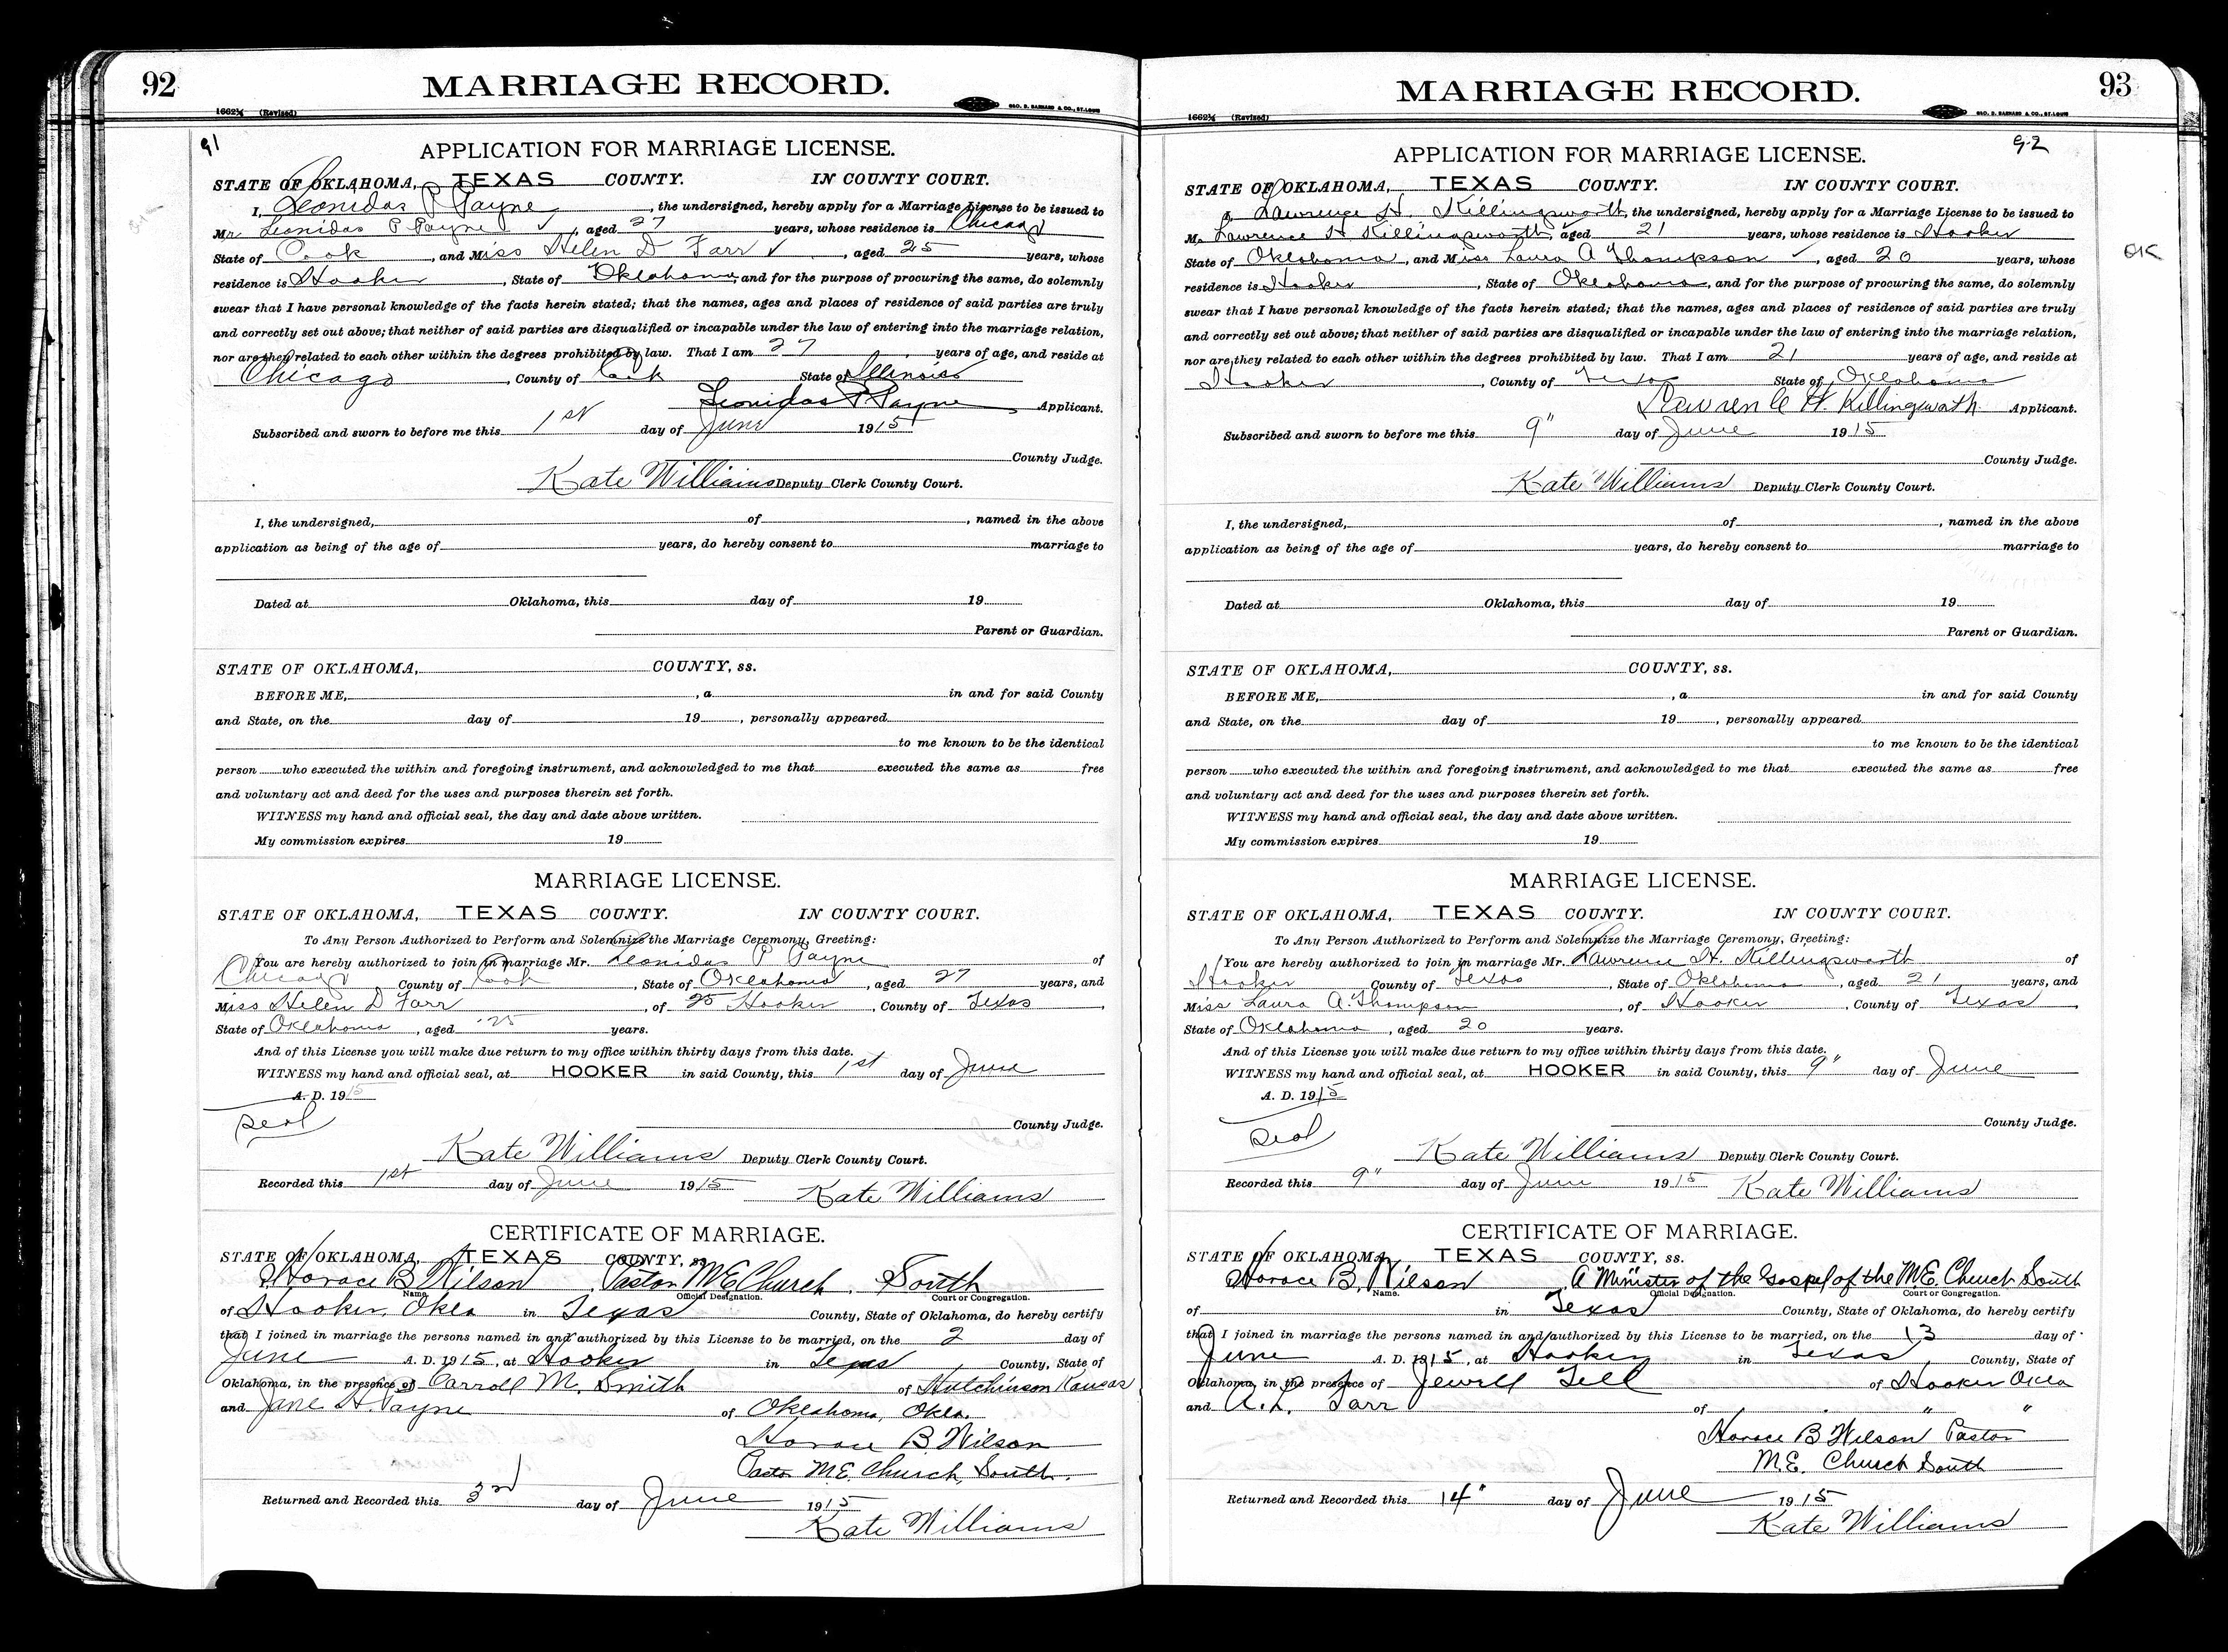 92
MARRIAGE RECORD.
1662½ (Revised) GEO. D. BARNARD & CO., ST. LOUIS
91
APPLICATION FOR MARRIAGE LICENSE.
STATE OF OKLAHOMA, TEXAS COUNTY. IN COUNTY COURT.
I, Leonidas P Payne, the undersigned, hereby apply for a Marriage License to be issued to
Mr Leonidas P Payne, aged 27 years, whose residence is Chicago
State of Cook, and Miss Helen D Farr, aged 25 years, whose
residence is Hooker, State of Oklahoma, and for the purpose of procuring the same, do solemnly
swear that I have personal knowledge of the facts herein stated; that the names, ages and places of residence of said parties are truly
and correctly set out above; that neither of said parties are disqualified or incapable under the law of entering into the marriage relation,
nor are they related to each other within the degrees prohibited by law. That I am 27 years of age, and reside at
Chicago, County of Cook State of Illinois
Leonidas P Payne Applicant.
Subscribed and sworn to before me this 1st day of June 1915
County Judge.
Kate Williams Deputy Clerk County Court.
I, the undersigned, of , named in the above
application as being of the age of years, do hereby consent to marriage to
Dated at Oklahoma, this day of 19
Parent or Guardian.
STATE OF OKLAHOMA, COUNTY, ss.
BEFORE ME, , a in and for said County
and State, on the day of 19 , personally appeared
to me known to be the identical
person who executed the within and foregoing instrument, and acknowledged to me that executed the same as free
and voluntary act and deed for the uses and purposes therein set forth.
WITNESS my hand and official seal, the day and date above written.
My commission expires 19
MARRIAGE LICENSE.
STATE OF OKLAHOMA, TEXAS COUNTY. IN COUNTY COURT.
To Any Person Authorized to Perform and Solemnize the Marriage Ceremony, Greeting:
You are hereby authorized to join in marriage Mr. Leonidas P Payne of
Chicago County of Cook, State of Oklahoma, aged 27 years, and
Miss Helen D Farr, of 25 Hooker, County of Texas,
State of Oklahoma, aged 25 years.
And of this License you will make due return to my office within thirty days from this date.
WITNESS my hand and official seal, at HOOKER in said County, this 1st day of June
A. D. 1915
Seal
County Judge.
Kate Williams Deputy Clerk County Court.
Recorded this 1st day of June 1915 Kate Williams
CERTIFICATE OF MARRIAGE.
STATE OF OKLAHOMA, TEXAS COUNTY, ss.
I Horace B Wilson, Pastor M E Church, South
Name. Official Designation. Court or Congregation.
of Hooker, Okla in Texas County, State of Oklahoma, do hereby certify
that I joined in marriage the persons named in and authorized by this License to be married, on the 2 day of
June A. D. 1915, at Hooker in Texas, County, State of
Oklahoma, in the presence of Carroll M. Smith of Hutchinson Kansas
and Jane H. Payne of Oklahoma, Okla.
Horace B. Wilson
Pastor M.E. Church, South.
Returned and Recorded this 3rd day of June 1915
Kate Williams
93
MARRIAGE RECORD.
1662½ (Revised) GEO. D. BARNARD & CO., ST. LOUIS
92
APPLICATION FOR MARRIAGE LICENSE.
STATE OF OKLAHOMA, TEXAS COUNTY. IN COUNTY COURT.
I, Lawrence H. Killingsworth, the undersigned, hereby apply for a Marriage License to be issued to
Mr Lawrence H Killingsworth, aged 21 years, whose residence is Hooker
State of Oklahoma, and Miss Laura A Thompson, aged 20 years, whose
OK
residence is Hooker, State of Oklahoma, and for the purpose of procuring the same, do solemnly
swear that I have personal knowledge of the facts herein stated; that the names, ages and places of residence of said parties are truly
and correctly set out above; that neither of said parties are disqualified or incapable under the law of entering into the marriage relation,
nor are they related to each other within the degrees prohibited by law. That I am 21 years of age, and reside at
Hooker, County of Texas State of Oklahoma
Lawrence H. Killingsworth. Applicant.
Subscribed and sworn to before me this 9" day of June 1915
County Judge.
Kate Williams Deputy Clerk County Court.
I, the undersigned, of , named in the above
application as being of the age of years, do hereby consent to marriage to
Dated at Oklahoma, this day of 19
Parent or Guardian.
STATE OF OKLAHOMA, COUNTY, ss.
BEFORE ME, , a in and for said County
and State, on the day of 19 , personally appeared
to me known to be the identical
person who executed the within and foregoing instrument, and acknowledged to me that executed the same as free
and voluntary act and deed for the uses and purposes therein set forth.
WITNESS my hand and official seal, the day and date above written.
My commission expires 19
MARRIAGE LICENSE.
STATE OF OKLAHOMA, TEXAS COUNTY. IN COUNTY COURT.
To Any Person Authorized to Perform and Solemnize the Marriage Ceremony, Greeting:
You are hereby authorized to join in marriage Mr. Lawrence H. Killingsworth of
Hooker County of Texas, State of Oklahoma, aged 21 years, and
Miss Laura A. Thompson, of Hooker, County of Texas,
State of Oklahoma, aged 20 years.
And of this License you will make due return to my office within thirty days from this date.
WITNESS my hand and official seal, at HOOKER in said County, this 9" day of June
A. D. 1915
Seal
County Judge.
Kate Williams Deputy Clerk County Court.
Recorded this 9" day of June 1915 Kate Williams
CERTIFICATE OF MARRIAGE.
STATE OF OKLAHOMA, TEXAS COUNTY, ss.
I Horace B. Wilson, A Minister of the Gospel of the M.E. Church South
Name. Official Designation. Court or Congregation.
of in Texas County, State of Oklahoma, do hereby certify
that I joined in marriage the persons named in and authorized by this License to be married, on the 13 day of
June A. D. 1915, at Hooker in Texas, County, State of
Oklahoma, in the presence of Jewell Tell of Hooker Okla
and A. L. Farr of " "
Horace B Wilson Pastor
M.E. Church South
Returned and Recorded this 14" day of June 1915
Kate Williams